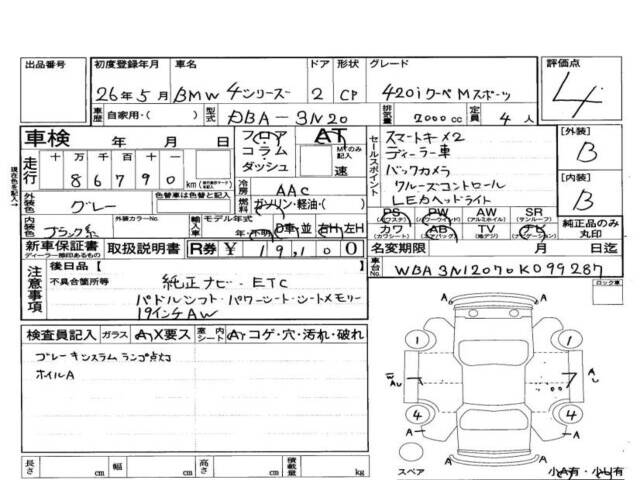 出品番号
初度登録年月 車名 ドア 形状 グレード 評価点
26年5月 BMW 4シリーズ 2 CP 420iクーペMスポーツ
4
車歴 自家用・( ) 型式 DBA-3N20 排気量 2000cc 定員 4人
車検 年 月 日
フロア コラム ダッシュ AT MTのみ記入 速
走行 十万 万 千 百 十 一
86790 km
冷房 AAC
燃料 ガソリン・軽油・( )
外装色 グレー 色替車は色替を記入
内装色 ブラック系 外装カラーNo. 輸入車 モデル年式 年・不明 D車 並 右H 左H
セールスポイント
スマートキー×2
ディーラー車
バックカメラ
クルーズコントロール
LEDヘッドライト
PS (パワステ) PW (パワーウインド) AW (アルミホイル) SR (サンルーフ)
カワ (カワシート) AB (エアバッグ) TV (地デジ) ナビ (ナビゲーション)
純正品のみ丸印
[外装] B
[内装] B
新車保証書 取扱説明書 R券 ¥ 19,100
ディーラー捺印あるもの
名変期限 月 日迄
車台No. WBA3N12070K099287
注意事項
後日品【 】
不具合箇所等
純正ナビ・ETC
パドルシフト・パワーシート・シートメモリー
19インチAW
ロック車
検査員記入 ガラス A,X要ス 室内シート A,コゲ・穴・汚れ・破れ
ブレーキシステム ランプ点灯
ホイルA
A
1 1
A
4 4
A A
A A
スペア
小A有・小U有
長さ cm 幅 cm 高さ cm 積載量 kg